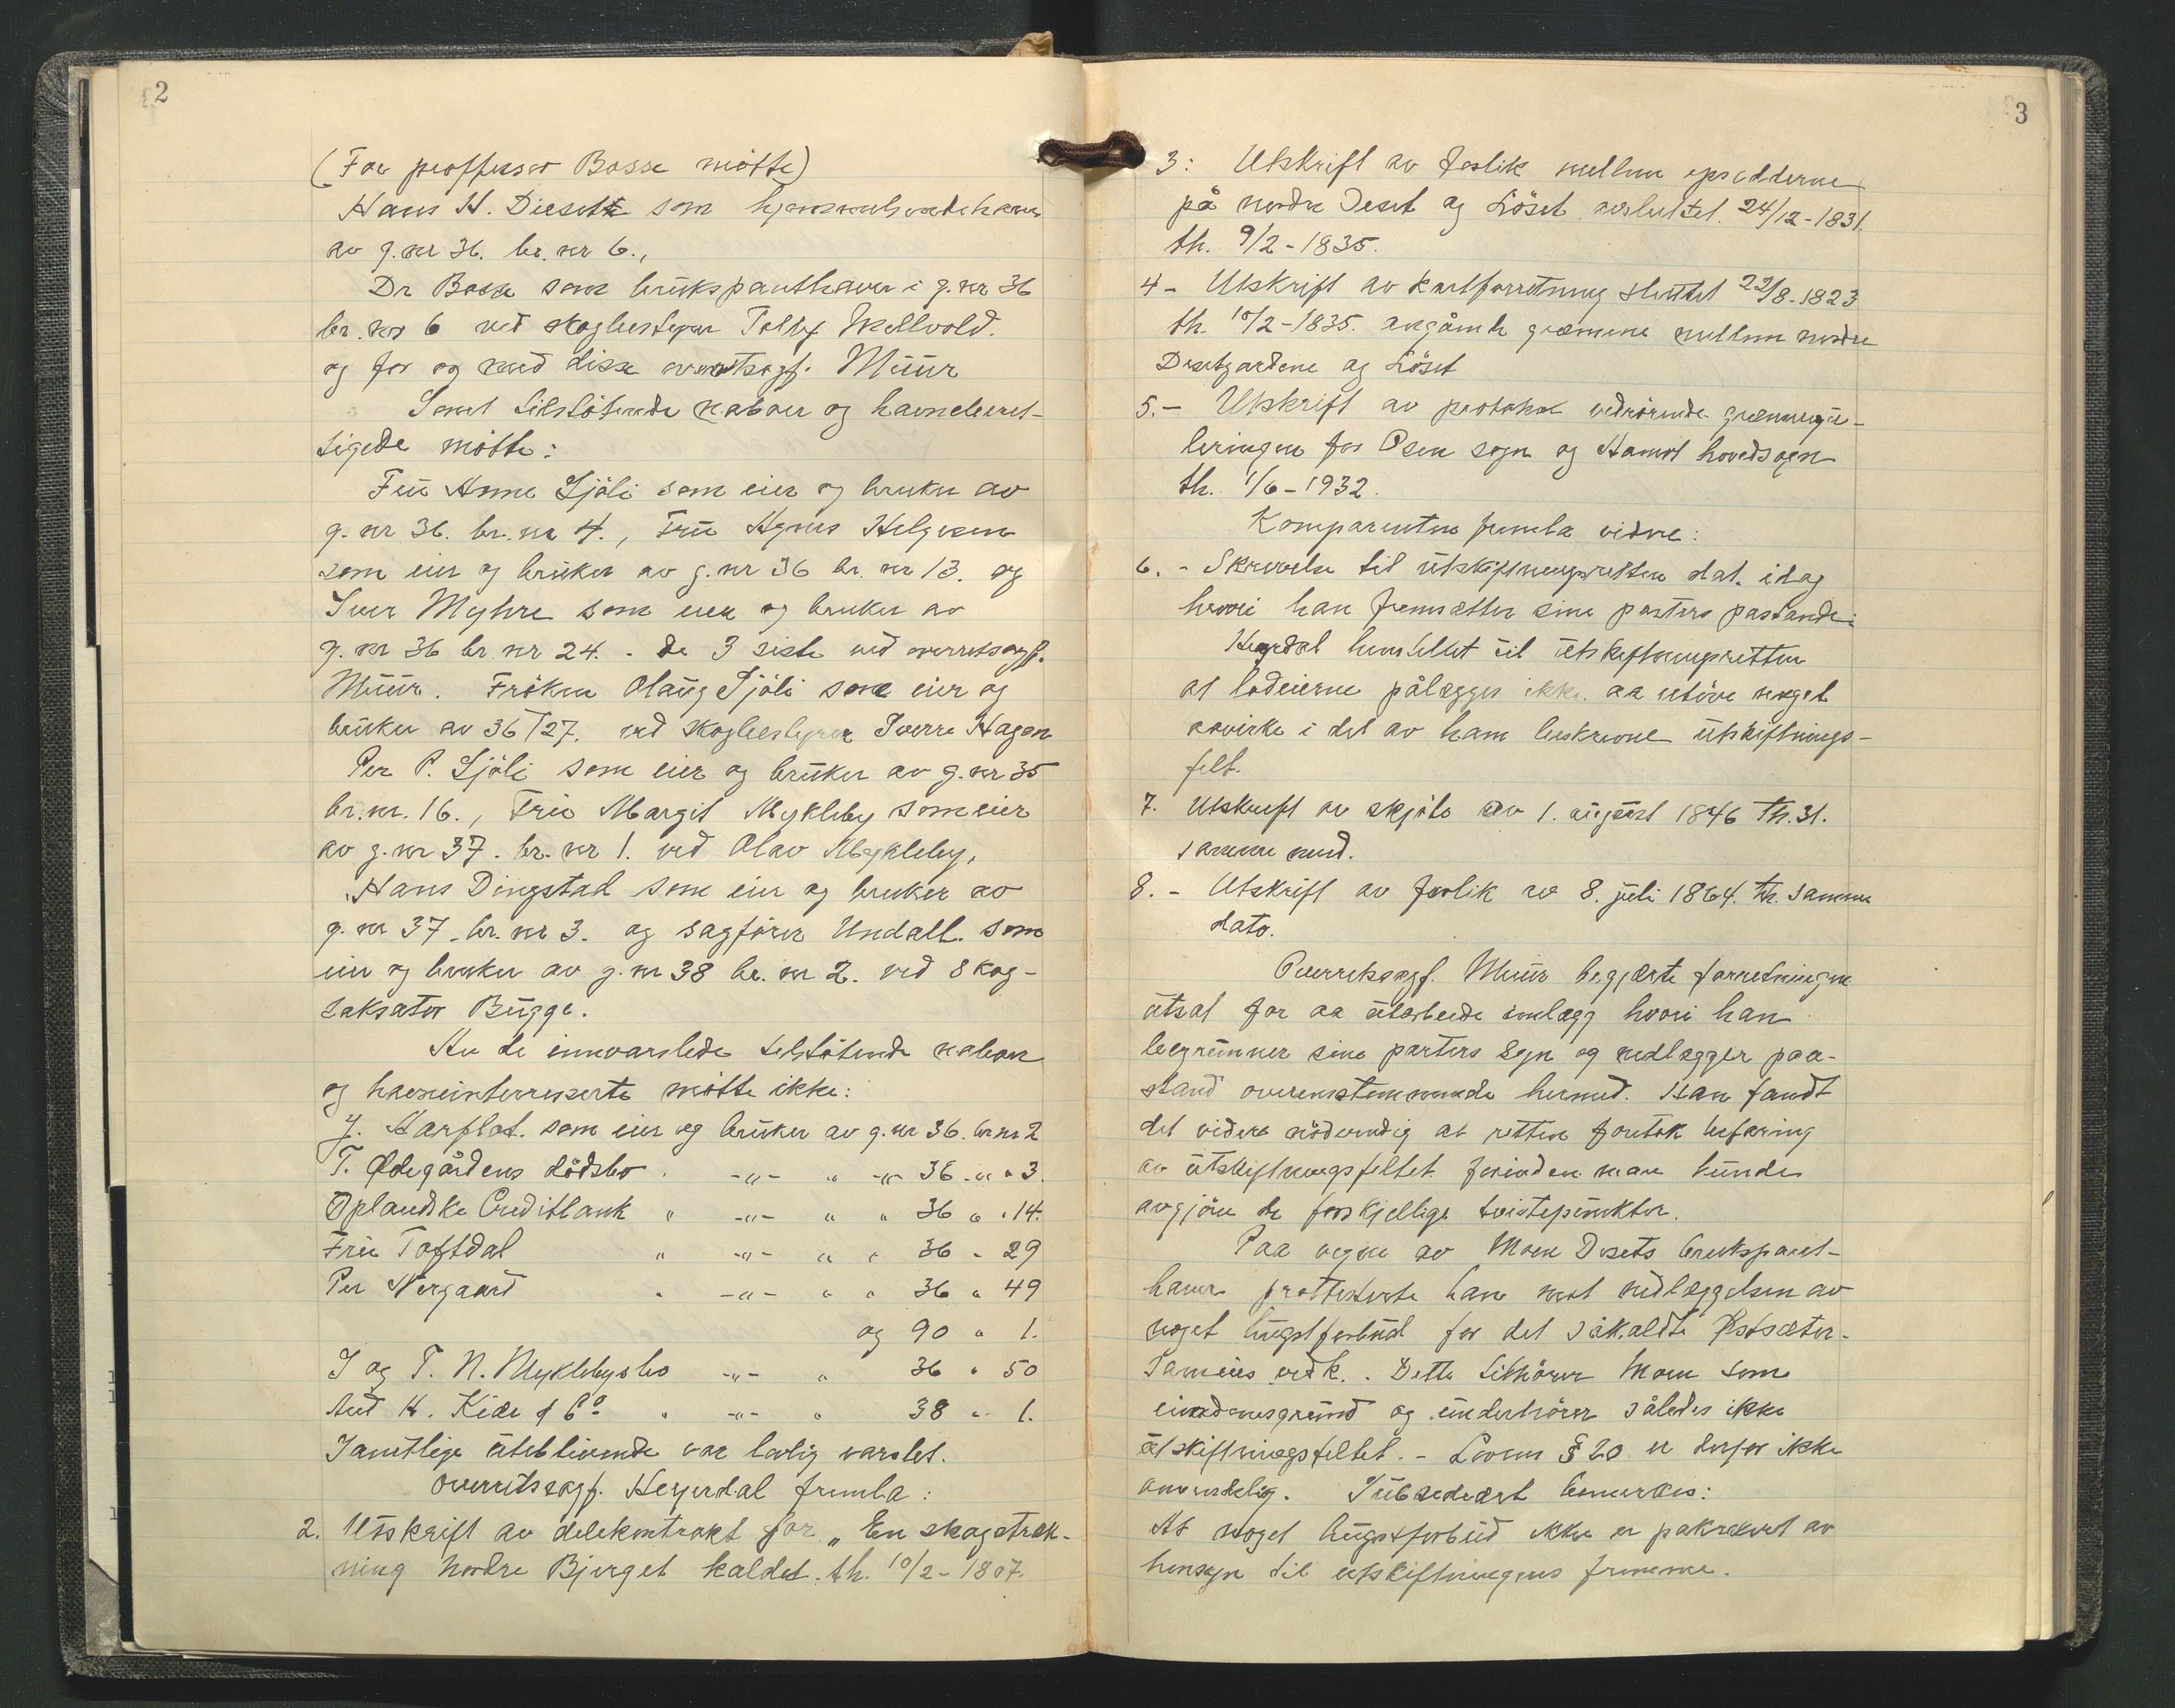 2
(For proffessor Bosse møtte)
Hans H. Diesett som hjemmelsindehaver
av g.nr 36. br. nr 6.,
Dr Bosse som brukspanthaver i g. nr 36
br. nr 6 ved skogbestyrer Tollef Mellvold.
og for og med disse overretsagf. Müür
Samt tilstøtende naboer og havneberet-
tigede møtte:
Frü Anne Sjöli som eier og bruker av
g. nr 36. br. nr 4., Frü Agnes Helgesen
som eier og brüker av g. nr 36 br. nr 13. og
Iver Myhre som eier og bruker av
g. nr 36 br. nr 24. - de 3 siste ved overretsagf.
Müür. Fröken Olaüg Sjöli som eier og
brüker av 36/27. ved skogbestyrer Sverre Hagen
Per P. Sjöli som eier og brüker av g. nr 35
br. nr. 16., Frü Margit Mykleby som eier
av g. nr 37. br. nr 1. ved Olav Mykleby,
Hans Dingstad som eier og bruker av
g. nr 37. br. nr 3. og sagförer Undall. som
eier og bruker av g. nr 38 br. nr 2. ved Skog-
taksator Bügge.
Av de innvarslede tilstötende naboer
og havneinterreserte mötte ikke:
J. Harplot. som eier og brüker av g. nr 36. br nr 2
T. Ødegårdens dödsbo . -"- " -"- 36 - " " 3.
Oplandske Creditbank " -"- " " 36 " " 14.
Frü Toftdal " -"- " " 36 - 29
Per Nergaard " -"- " " 36 " 49
og 90 " 1.
I og T. N. Myklebysbo -"- " 36 " 50
And H. Kiær & Co " -"- " 38 " 1.
Samtlige üteblivende var lovlig varslet.
Overretssagf. Heyerdal fremla:
2. Utskrift av delekontrakt for „En skogstræk-
ning Nordre Bjerget kaldet. th. 10/2 - 1807.
3
3: Utskrift av forlik mellem opsidderne
på nordre Deset og Löset avsluttet. 24/12 - 1831.
th. 9/2 - 1835.
4 - Utskrift av kartforretning sluttet 22/8 - 1823
th. 10/2 - 1835. angåmde grænsene mellem nordre
Desetgardene og Löset
5. - Utskrift av protokol vedrörende grænseregü-
leringen for Osen sogn og Aamot hovedsogn
th. 1/6 - 1932.
Komparenten fremla videre:
6. - Skrivelse til ütskiftningsretten dat. idag
hvori han fremsætter sine parters pastande:
Heyerdal henstillet til ütskiftningsretten
at lodeierne pålægges ikke aa utöve noget
avvirke i det av ham beskrevne ütskiftnings-
felt.
7. Utskrift av skjöte av 1. aügüst 1846 th. 31.
samme mnd.
8. - Utskrift av forlik av 8. juli 1864. th. samme
dato.
Overretssagf. Müür begjærte forretningen
ütsat for aa ütarbeide innlægg hvori han
begrünner sine parters syn og nedlægger paa-
stand overensstemmende hermed. Han fandt
det videre nödvendig at retten foretok befaring
av ütskiftningsfeltet forinden man kunde
avgjöre de forskjellige tvistepünkter.
Paa vegne av Moen Desets brukspant-
haver protesterte han mot nedlæggelsen av
noget hügstforbüd for det såkaldte
Sameies vedk. . Dette tilhörer Moen som
eiendomsgrünnd og ünderhörer således ikke
ütskiftningsfeltet. - Lovens § 20 er derfor ikke
anvendelig. Sübsediært bemerkes:
At noget hügstforbüd ikke er pakrævet av
hensyn til utskiftningens fremme.